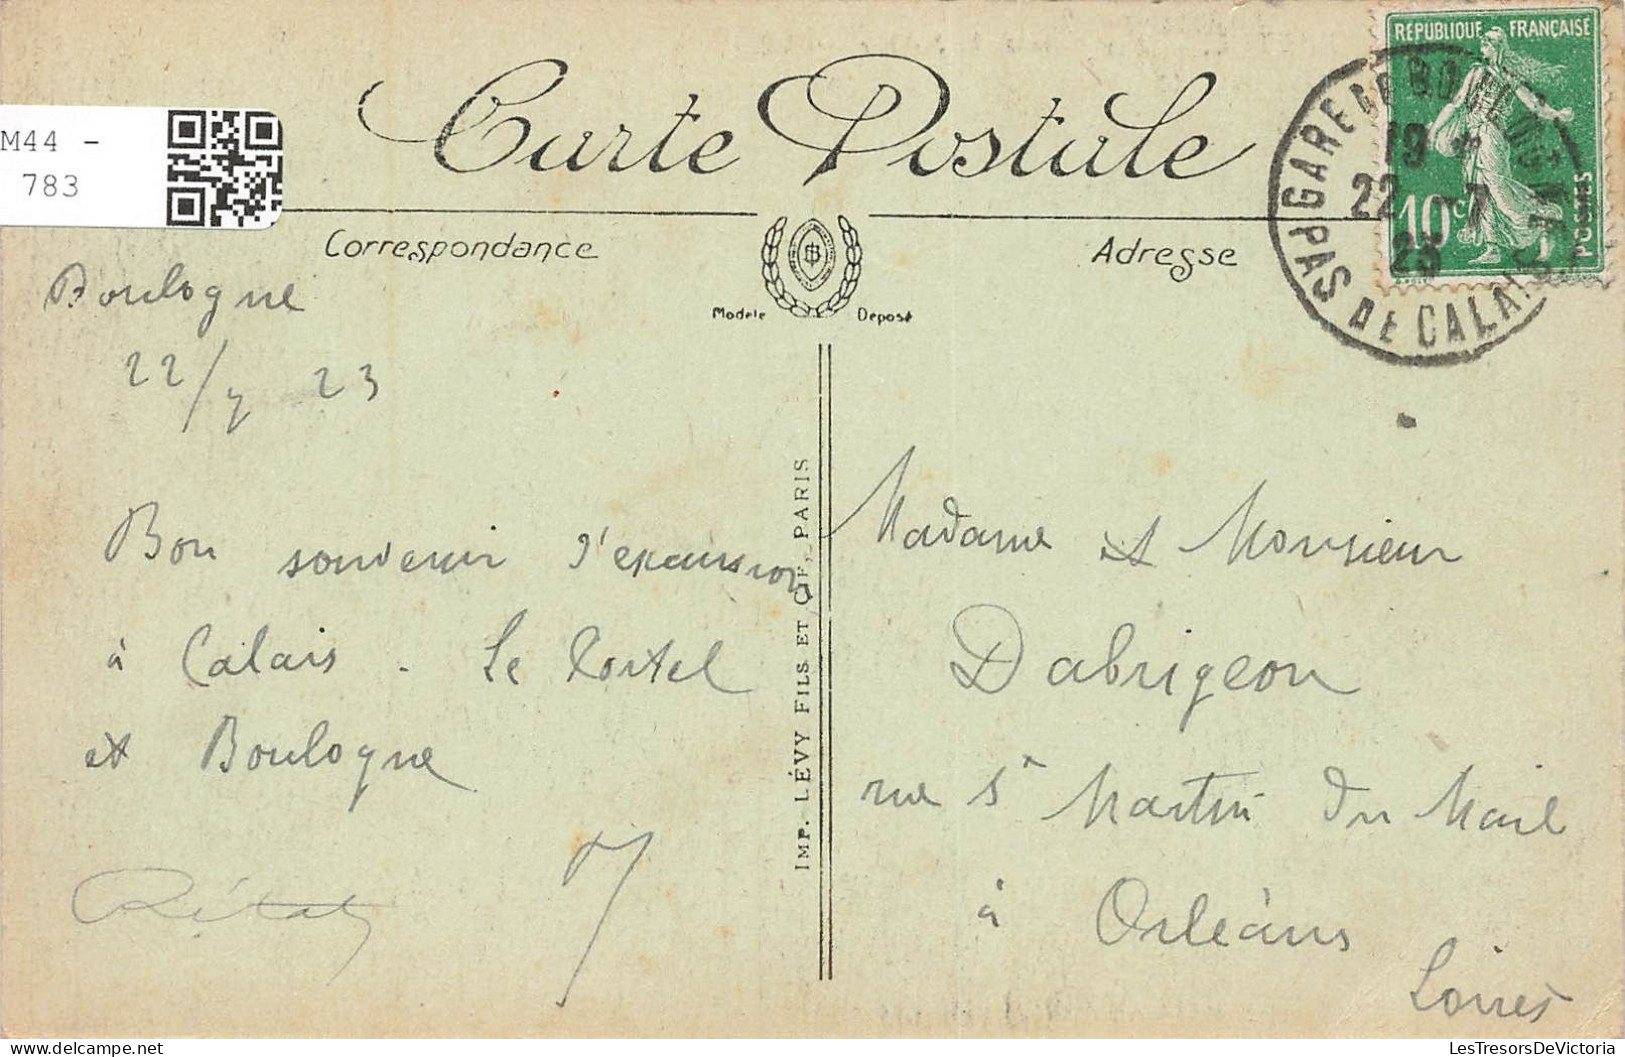 RÉPUBLIQUE FRANÇAISE
10c
POSTES
GARE DE BOULOGNE
19 *
22 -7
23
PAS DE CALAIS
M44 -
783
Carte Postale
Correspondance
Adresse
Modele Déposé
Boulogne
22/7 23
Bon souvenir d'excursion
à Calais - Le Portel
et Boulogne
IMP. LÉVY FILS ET CIE, PARIS
Madame et Monsieur
Dabrigeon
rue St Martin du Mail
à Orléans
Loiret
LesTresorsDeVictoria